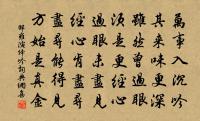 萬事入沉吟
其來味更深
雖然曾過眼
須是更經心
過眼未盡見
經心肯盡尋
盡尋能得見
方始是真金
邵雍演繹吟